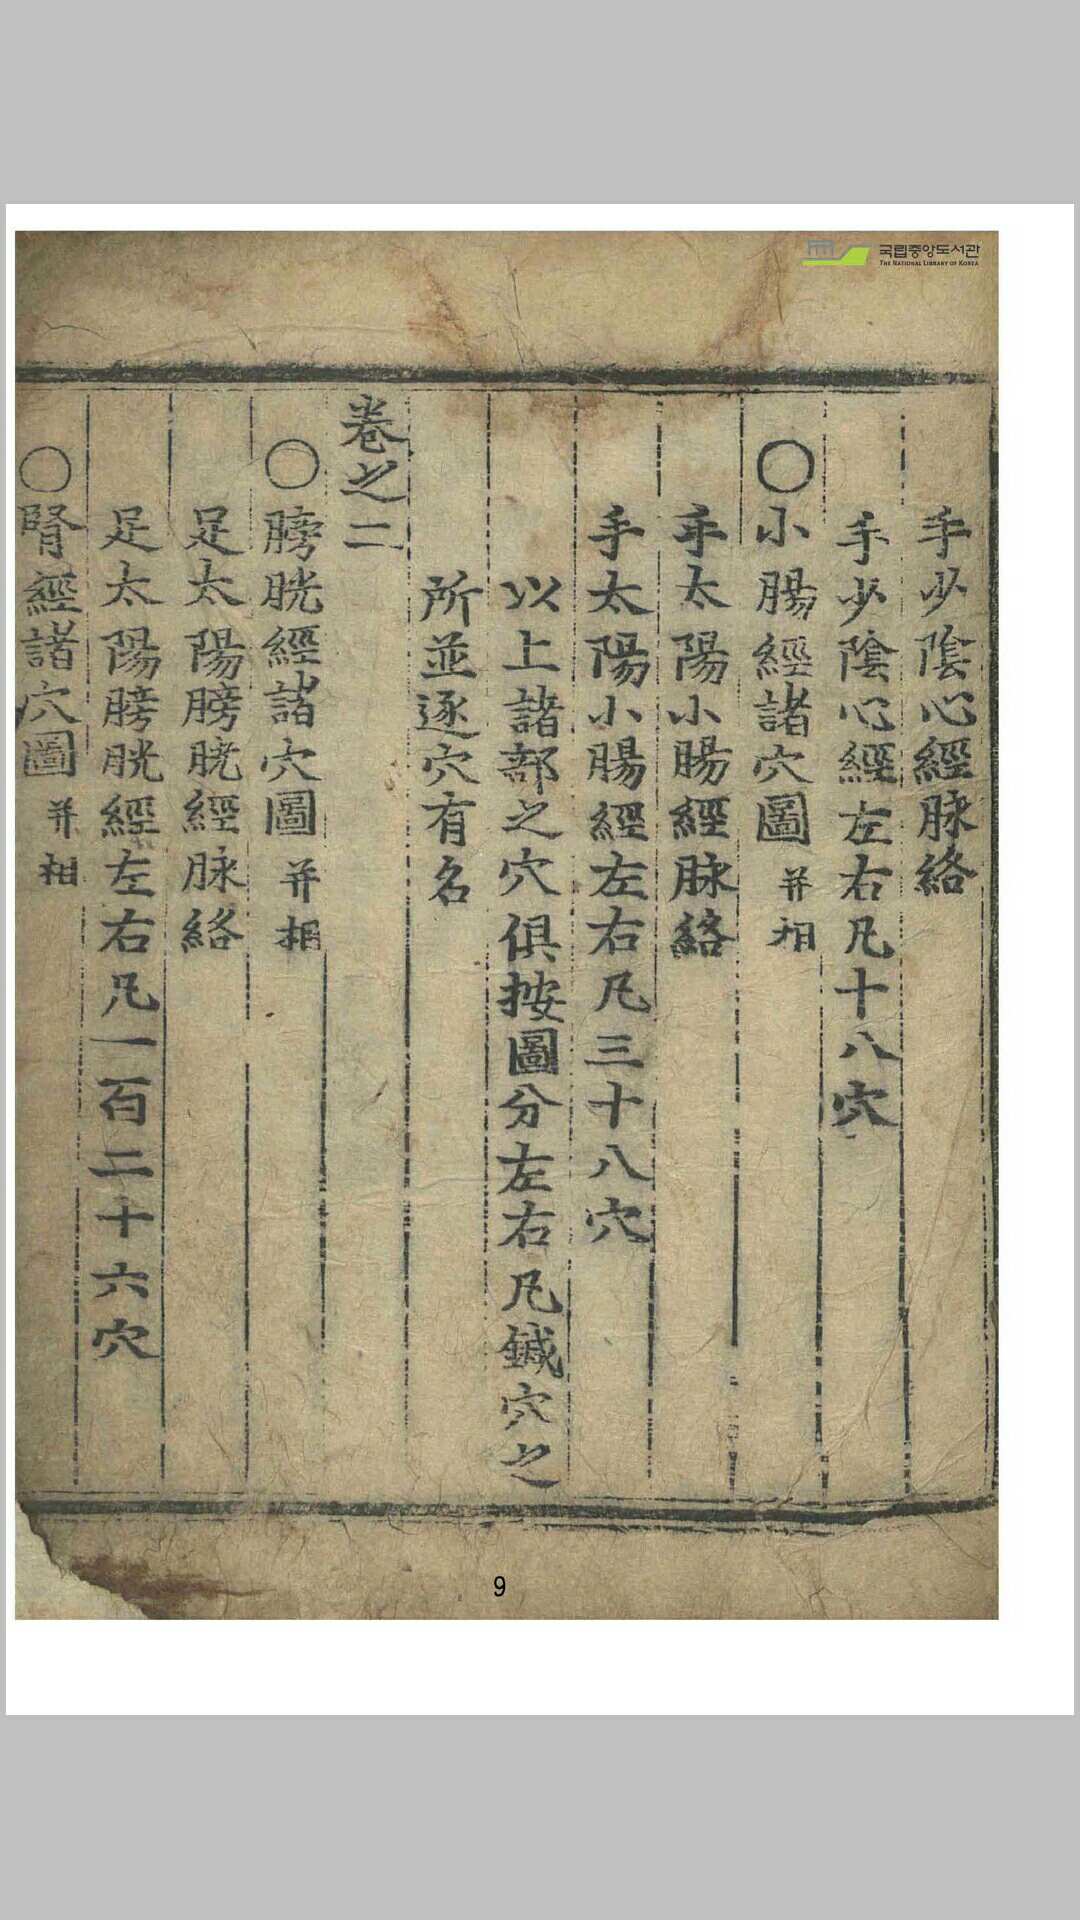 국립중앙도서관
THE NATIONAL LIBRARY OF KOREA
手少陰心經脉絡
手少陰心經左右凡十八穴
〇小腸經諸穴圖并相
手太陽小腸經脉絡
手太陽小腸經左右凡三十八穴
以上諸部之穴俱按圖分左右凡鍼穴之
所並逐穴有名
卷之二
〇膀胱經諸穴圖并相
足太陽膀胱經脉絡
足太陽膀胱經左右凡一百二十六穴
〇腎經諸穴圖并相
9